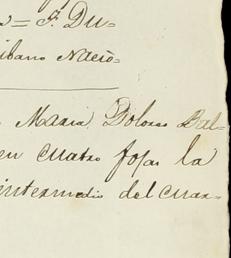 = P. Du=
ibano Nacio=
Maria Dolores Bal-
en cuatro fojas la
intermedio del cuar=